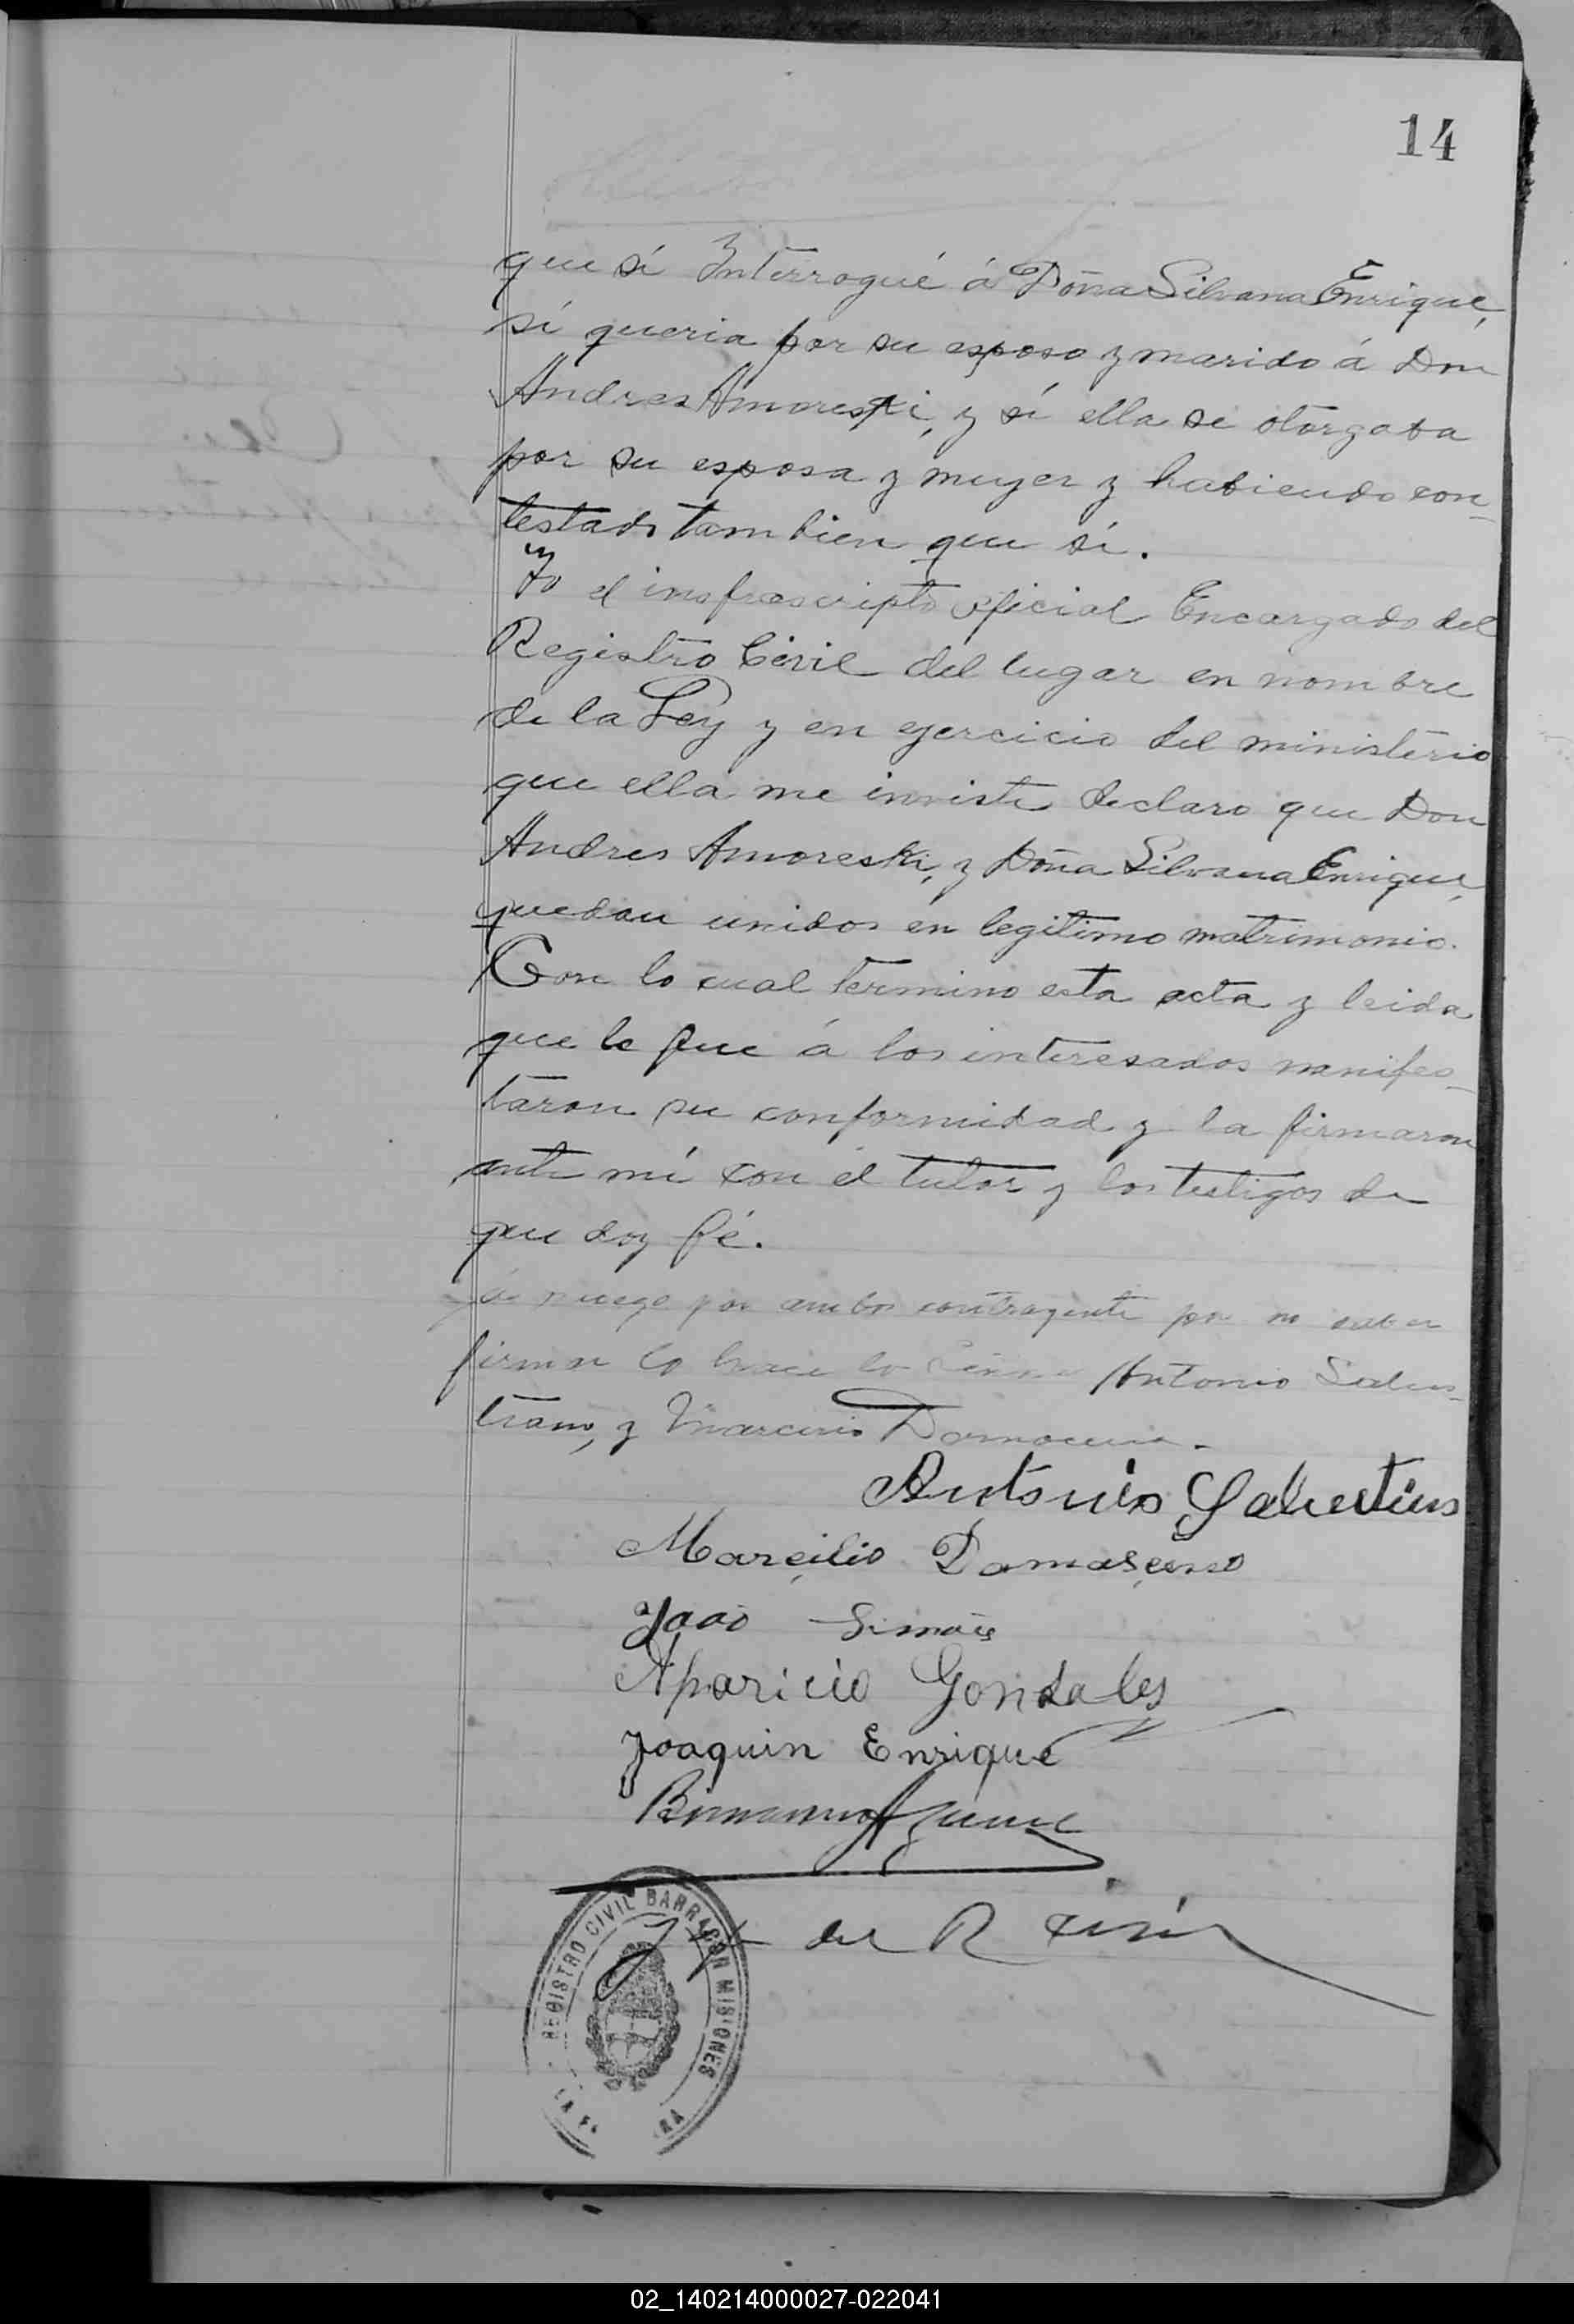 14
que sí Interrogué á Doña Silvana Enrique,
sí queria por su esposo y marido á Don
Andres Amoreski, y sí ella se otorgaba
por su esposa y mujer y habiendo con-
testado tambien que sí.
Yo el insfrascripto oficial Encargado del
Registro Civil del lugar en nombre
de la Ley y en ejercicio del ministerio
que ella me inviste declaro que Don
Andres Amoreski, y Doña Silvana Enrique,
quedan unidos en legitimo matrimonio.
Con lo cual termino esta acta y leida
que le fue á los interesados manifes-
taron su conformidad y la firmaron
ante mí con el tutor y los testigos de
que doy fé.
á ruego por ambos contrayente por no saber
firmar lo hace lo Antonio Salus-
tiano, y Marcirio
Antonio
Marcilio Damasceno
João Simões
Aparicio Gonsales
Joaquin Enrique
Jefe del R Civil
REGISTRO CIVIL BARRACON MISIONES
02_140214000027-022041